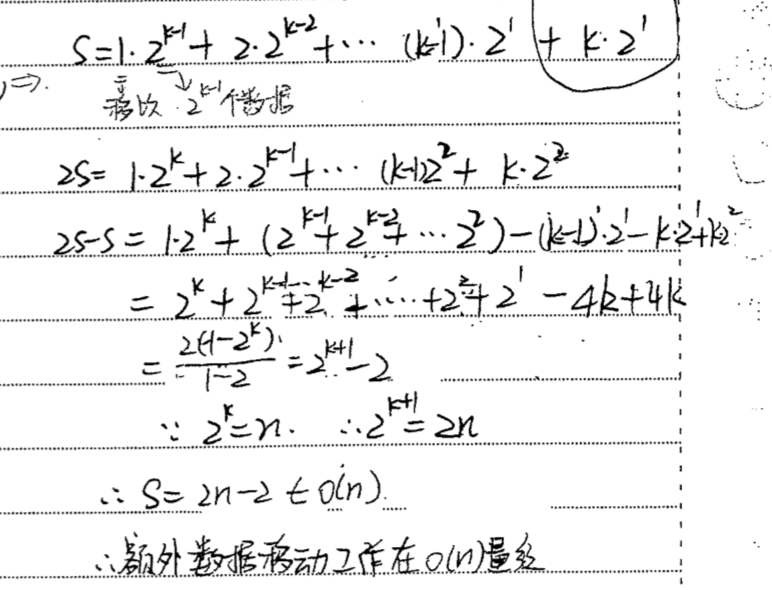 S=1·2^{k-1}+2·2^{k-2}+⋯(k-1)·2^1+k·2^1
⇒. 移次 2^{k-1}个数据
2S=1·2^k+2·2^{k-1}+⋯(k-1)2^2+k·2^2
2S-S=1·2^k+(2^{k-1}+2^{k-2}+⋯2^2)-(k-1)·2^1-k·2^1+k·2^2
=2^k+2^{k-1}+2^{k-2}+⋯+2^2+2^1-4k+4k
=\frac{2(1-2^k)}{1-2}=2^{k+1}-2
∵2^k=n. ∴2^{k+1}=2n
∴S=2n-2∈O(n).
∴额外数据移动工作在O(n)量级